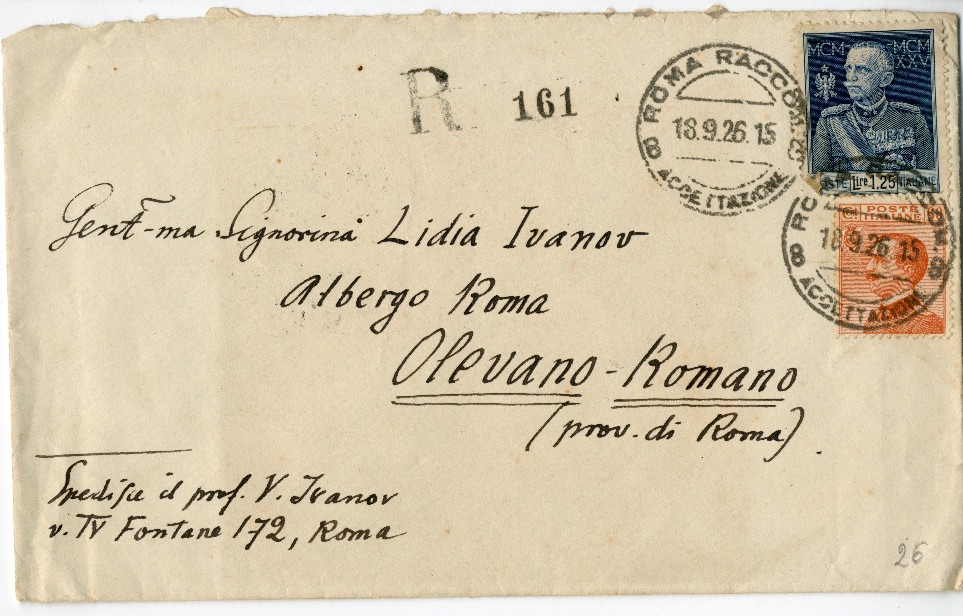 R 161
8 ROMA RACCOM. 8
18.9.26.15
ACCETTAZIONE
MCM MCM
XXV
POSTE Lire 1,25 ITALIANE
POSTE
ITALIANE
18.9.26.15
8 8
ACCETTAZIONE
Gent-ma Signorina Lidia Ivanov
Albergo Roma
Olevano-Romano
(prov. di Roma)
Spedisce il prof. V. Ivanov
v. IV Fontane 172, Roma
26